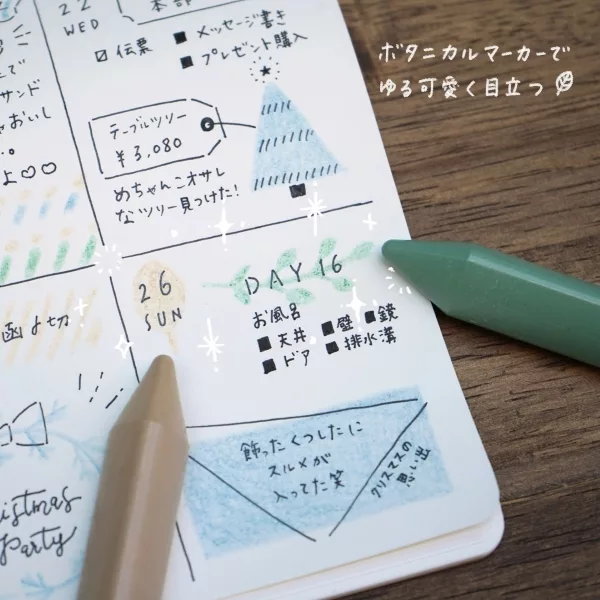 ボタニカルマーカーで
ゆる可愛く目立つ
22
WED
本部
伝票
メッセージ書き
プレゼント購入
テーブルツリー
¥3,080
めちゃんこオサレ
なツリー見つけた!
で
サンド
おいし
よ♡♡
函〆切
26
SUN
DAY 16
お風呂
天井
壁
鏡
ドア
排水溝
飾ったくつしたに
スルメが
入ってた笑
クリスマスの
思い出
istmas
party